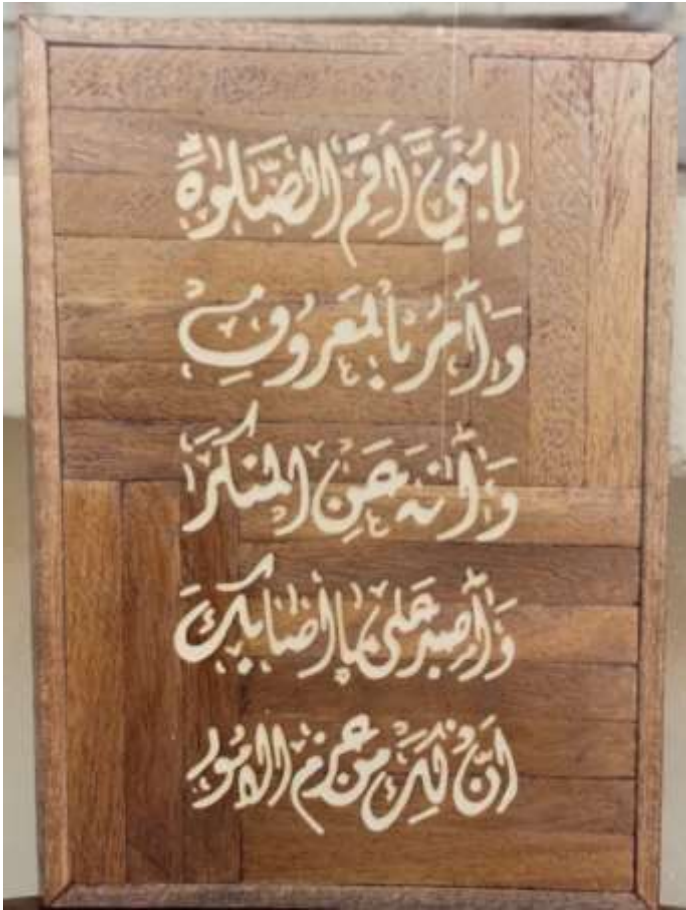 يَا بُنَيَّ أَقِمِ الصَّلَوٰةَ
وَأْمُرْ بِالْمَعْرُوفِ
وَانْهَ عَنِ الْمُنكَرِ
وَاصْبِرْ عَلَىٰ مَا أَصَابَكَ
إِنَّ ذَٰلِكَ مِنْ عَزْمِ الْأُمُورِ